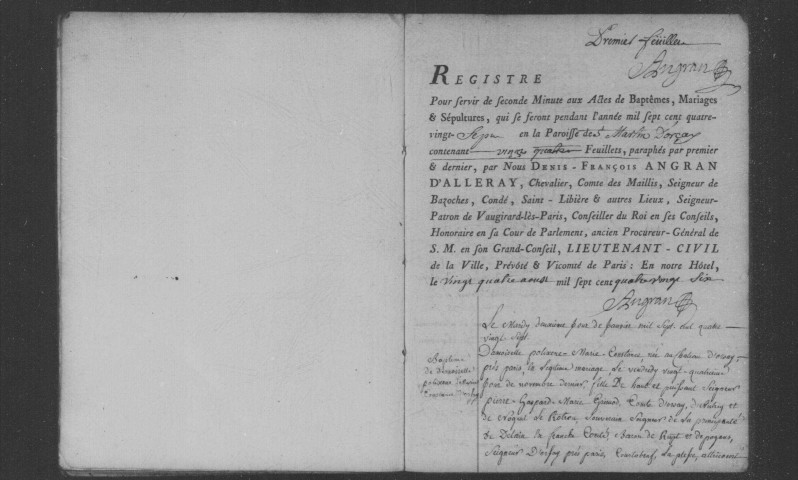 Premier feuillet
Angran
REGISTRE
Pour servir de seconde Minute aux Actes de Baptêmes, Mariages
& Sépultures, qui se feront pendant l'année mil sept cent quatre-
vingt Sept en la Paroisse de St Martin D'orçay
contenant vingt quatre Feuillets, paraphés par premier
& dernier, par Nous DENIS-FRANÇOIS ANGRAN
D'ALLERAY, Chevalier, Comte des Maillis, Seigneur de
Bazoches, Condé, Saint-Libière & autres Lieux, Seigneur-
Patron de Vaugirard-lès-Paris, Conseiller du Roi en ses Conseils,
Honoraire en sa Cour de Parlement, ancien Procureur-Général de
S. M. en son Grand-Conseil, LIEUTENANT-CIVIL
de la Ville, Prévôté & Vicomté de Paris: En notre Hôtel,
le vingt quatre aoust mil sept cent quatre vingt Six
Angran
Le Mardy deuxième jour de Janvier mil Sept Cent quatre
vingt Sept
Baptême
de Demoiselle
polixene Marie
Demoiselle polixene Marie Constance, née au Chateau d'orsay
près paris, le legitime mariage, le vendredy vingt-quatrième
jour de novembre dernier, fille De haut et puissant Seigneur
pierre Gaspard Marie Grimod, Comte d'orsay, et
de Nogent le Rotrou, Souverain Seigneur de la principauté
de Delain En franche Comté, Baron de Rupt et
Seigneur D'orsay près paris, Courtabeuf, La plesse,